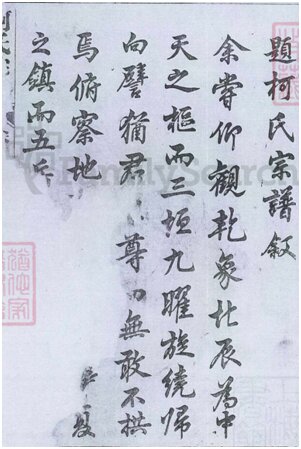 題柯氏宗譜敘
余嘗仰觀乾象北辰為中
天之樞而三垣九曜旋繞歸
向譬猶君 尊 無敢不拱
焉俯察地
之鎮而五
FamilySearch